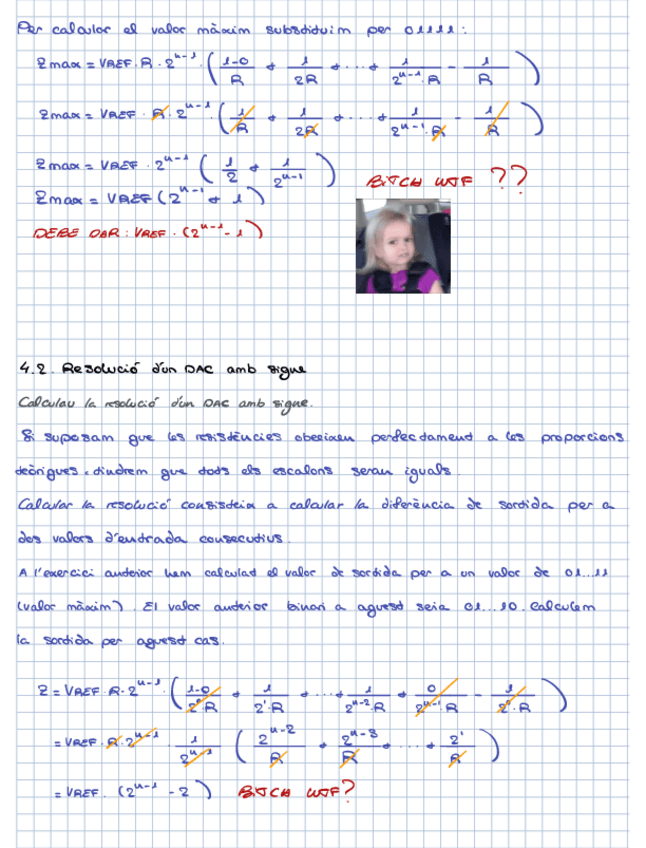 Per calcular el valor màxim substituim per 01111:
Zmax = VREF · R · 2^(n-1) · ( (1-0)/R + 1/2R + ··· + 1/(2^(n-1)·R) - 1/R )
Zmax = VREF · R · 2^(n-1) ( 1/R + 1/2R + ··· + 1/(2^(n-1)·R) - 1/R )
Zmax = VREF · 2^(n-1) ( 1/2 + 1/2^(n-1) )
BITCH WTF ??
Zmax = VREF (2^(n-1) + 1)
DEBE DAR: VREF · (2^(n-1) - 1)
4.2. Resolució d'un DAC amb signe
Calculau la resolució d'un DAC amb signe.
Si suposam que les resistències obeeixen perfectament a les proporcions
teòriques, tindrem que tots els escalons seran iguals.
Calcular la resolució consisteix a calcular la diferència de sortida per a
dos valors d'entrada consecutius.
A l'exercici anterior hem calculat el valor de sortida per a un valor de 01...11
(valor màxim). El valor anterior binari a aquest seria 01...10. Calculem
la sortida per aquest cas.
Z = VREF · R · 2^(n-1) · ( (1-0)/(2^0·R) + 1/(2^1·R) + ··· + 1/(2^(n-2)·R) + 0/(2^(n-1)·R) - 1/(2^0·R) )
= VREF · R · 2^(n-1) · 1/2^(n-1) ( 2^(n-2)/R + 2^(n-3)/R + ··· + 2^1/R )
= VREF · (2^(n-1) - 2) BITCH WTF?